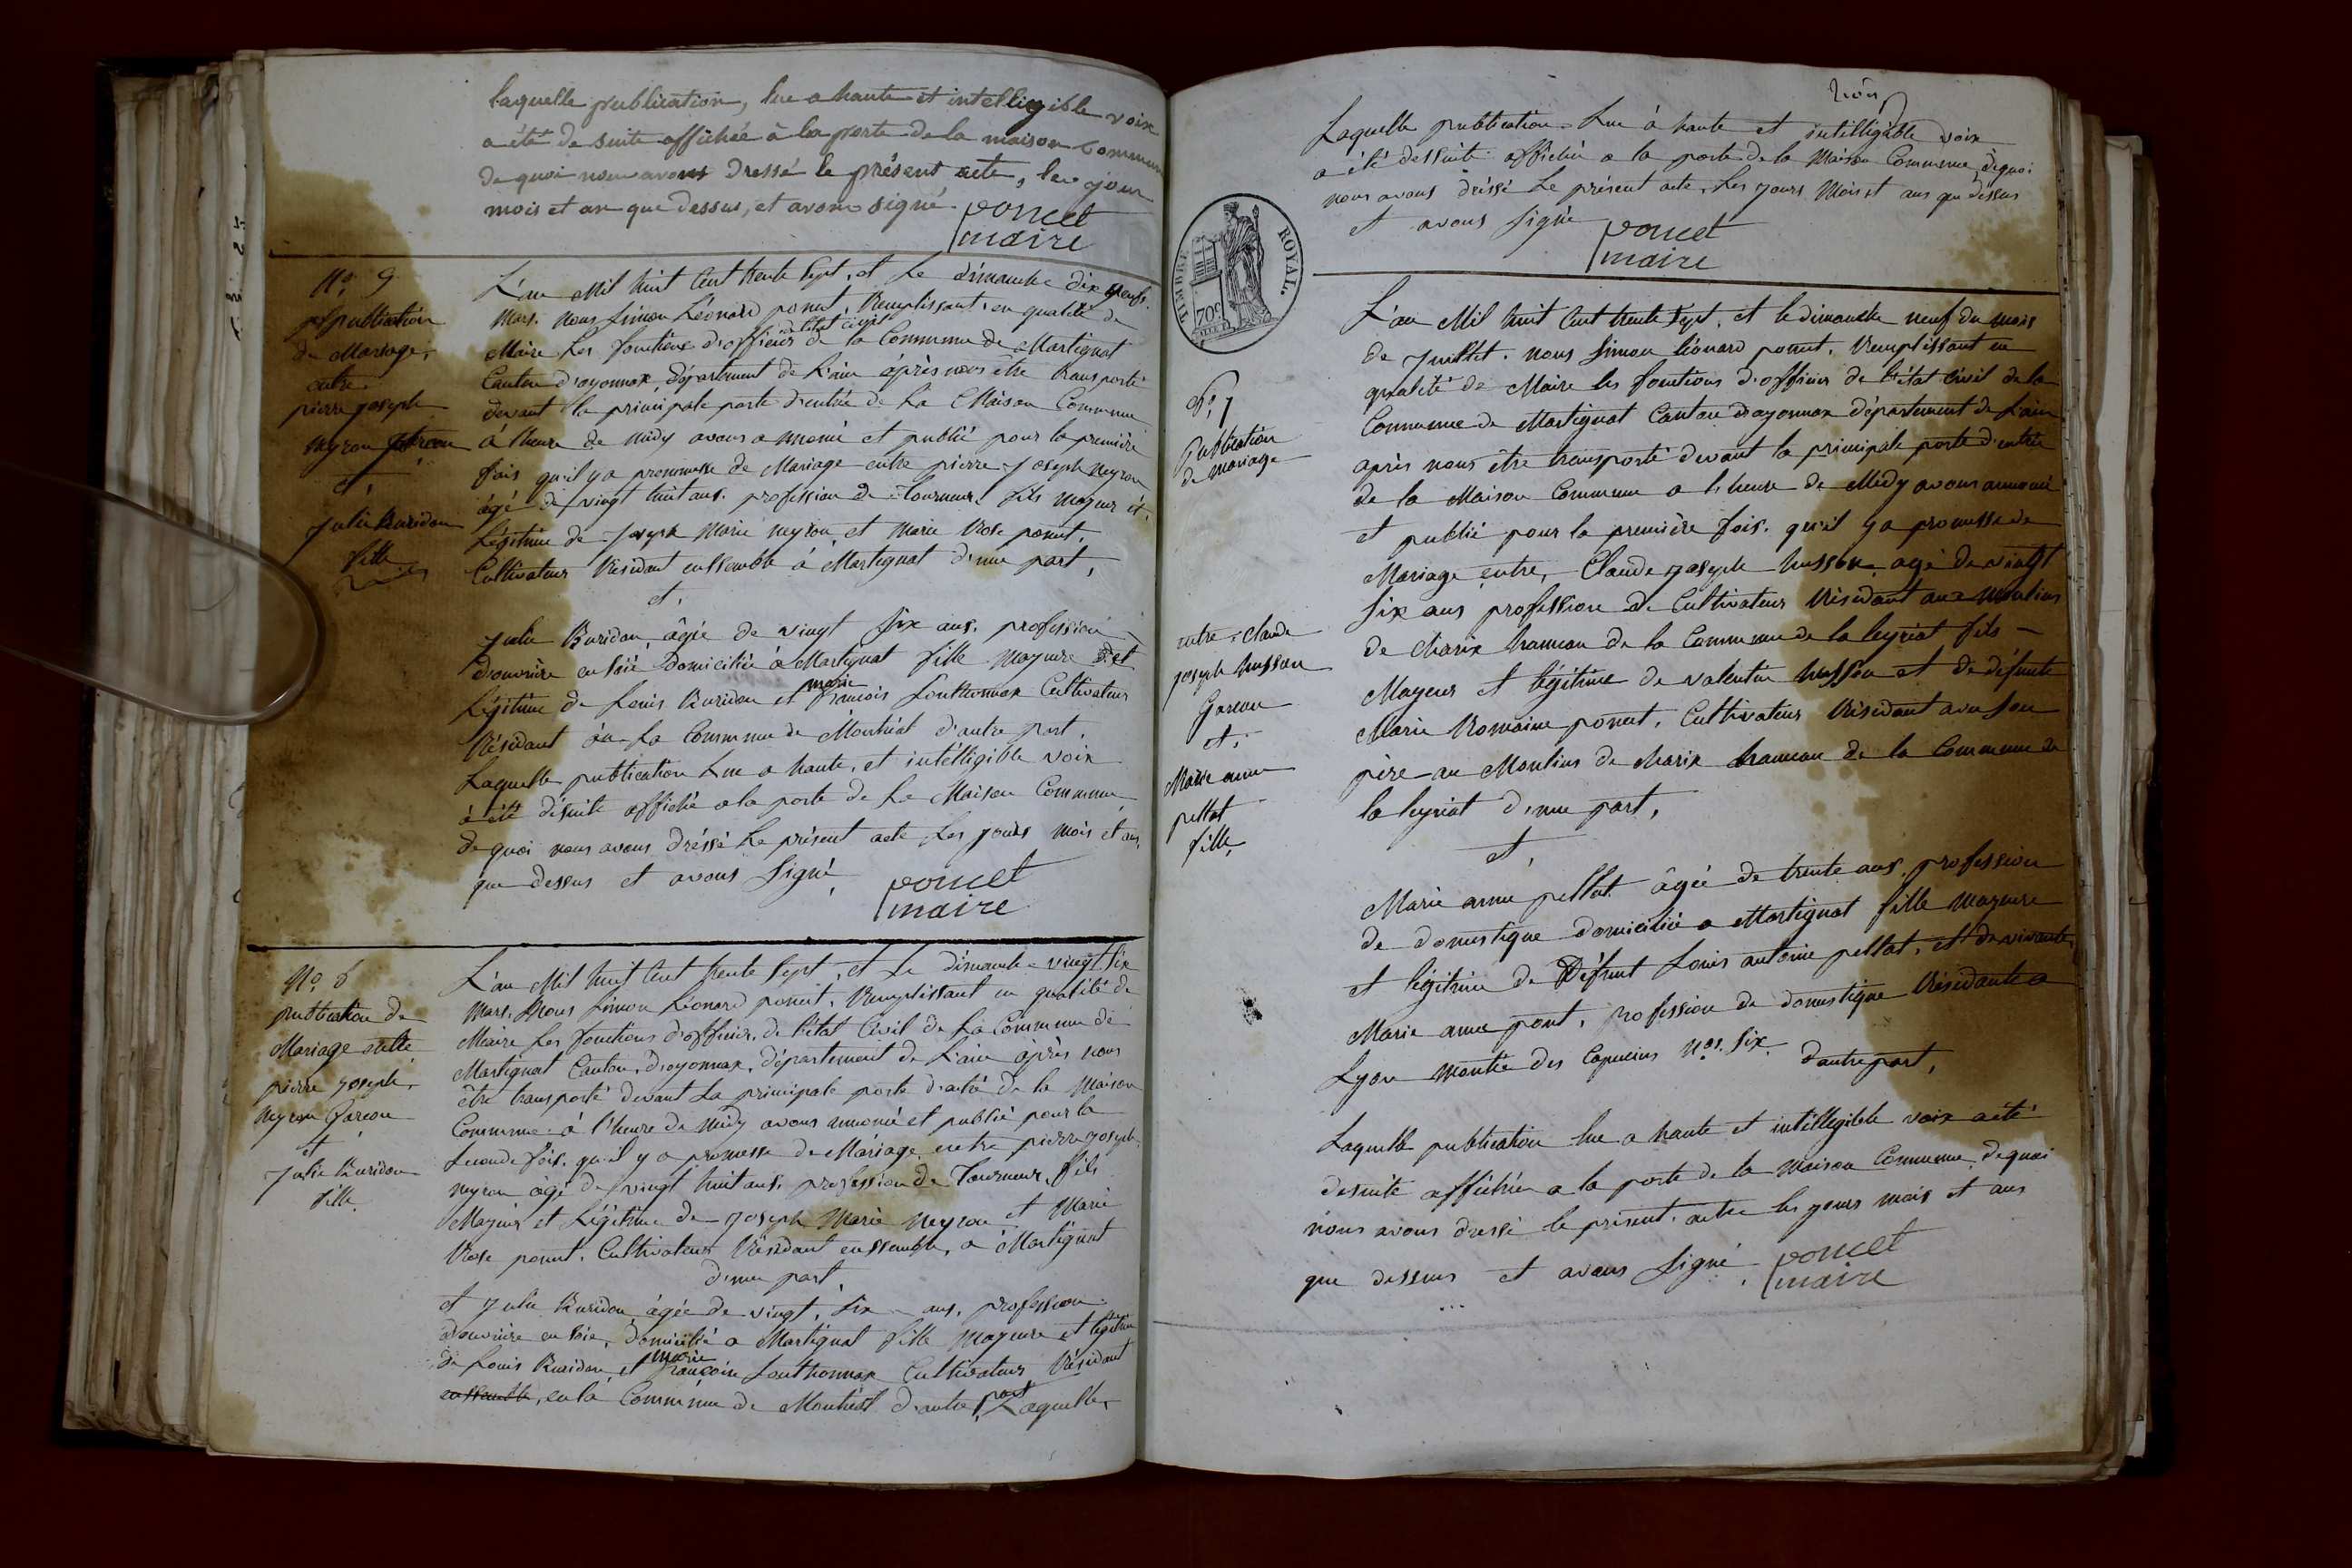 laquelle publication, lue a haute et intelligible voix
a été de suite affichée à la porte de la maison Commune
de quoi nous avons dressé le présent acte, les jour
mois et an que dessus, et avons signé. poncet
maire
N.o 9
publication
de Mariage,
entre
pierre joseph
neyron
et,
Julie Buridon
fille
L'an Mil huit Cent trente Sept, et Le dimanche dix neuf.
Mars. Nous Simon Léonard ponut, Remplissant en qualité de
Maire Les fonctions d'officier de l'état civil de la Commune de Martignat
Canton d'oyonnax, département de L'ain après nous être transporté
devant la principale porte d'entrée de La Maison Commune
à l'heure de Midy avons annoncé et publié pour la première
fois qu'il y a prommesse de Mariage entre pierre Joseph neyron
âgé de vingt huit ans. profession de Tourneur fils mageur et.
Légitime de Joseph Marie neyron et Marie Rose ponut.
Cultivateurs Résidant enssemble à Martignat d'une part,
et,
Julie Buridon, âgée de vingt Six ans, profession
d'ouvrière en soie Domiciliée à Martignat fille mageure et
Légitime de Louis Buridon et marie francois Louthonnax Cultivateurs
Résidant en La Commune de Montréal d'autre part.
Laquelle publication Lue a haute, et intélligible voix
à été désuite affiché a la porte de La Maison Commune
de quoi nous avons dréssé Le présent acte Les jours mois et ans,
que dessus et avons Signé, poncet
maire
N.o 6
publication de
Mariage entre
pierre joseph,
neyron Garcon
et
Julie Buridon
fille.
L'an Mil huit Cent trente Sept, et Le dimanche vingt Six
Mars. Nous Simon Léonard ponut, Remplissant en qualité de
Maire Les fonctions d'officier de l'état Civil de La Commune de
Martignat Canton, d'oyonnax, département de L'ain après nous
être transporté devant La principale porte d'entré de la Maison
Commune à l'heure de Midy avons annoncé et publié pour la
Seconde fois. qu'il y a promesse de Mariage entre pierre joseph
neyron âgé de vingt huit ans. profession de Tourneur, fils
Mageur et Légitime de Joseph Marie Neyron et Marie
Rose ponut. Cultivateurs Résidant enssemble, a Martignat
d'une part,
et Julie Buridon, âgée de vingt, Six ans, profession
d'ouvrière en Soie, domicilié a Martignat fille mageure et légitime
de Louis Buridon, et marie françoise Louthonnax Cultivateurs Résidant
enssemble, en la Commune de Montréal d'autre part Laquelle
Laquelle publication Lue à haute et intélligible voix
a été dessuite affichée a la porte de la Maison Commune, dequoi
nous avons dréssé Le présent acte, Les jours Mois et ans que dessus
et avons Signé poncet
maire
TIMBRE ROYAL.
70c
N.o 7
Publication
de mariage
entre Claude
joseph husson
Garcon
et,
Marie anne
pellat
fille,
L'an Mil huit Cent trente Sept, et le dimanche neuf du mois
de Juillet. nous Simon Léonard ponut, Remplissant en
qualité de Maire les fonctions d'officier de l'état Civil de la
Commune de Martignat Canton d'oyonnax département de L'ain
après nous être transporté devant la principale porte d'entrée
de la Maison Commune a l'heure de Midy avons annoncé
et publié pour la première fois. qu'il y a promesse de
Mariage entre, Claude joseph husson, agé de vingt
Six ans profession de Cultivateur Résidant aux Moulins
de charix hameau de la Commune de la leyriat fils
Mageur et légitime de valentin husson et de défunte
Marie Romaine ponut, Cultivateur Résidant avec Son
père au Moulins de charix hameau de la Commune de
la leyriat d'une part,
et,
Marie anne pellat. âgée de trente ans, profession
de domestique domiciliée a Martignat fille mageure
et légitime de Défunt Louis antoine pellat, et de vivante,
Marie anne pont, profession de domestique Résidante a
Lyon Montée des Capucins N.os Six. d'autre part,
Laquelle publication lue a haute et intélligible voix a été
desuite affichée a la porte de la Maison Commune, dequoi
nous avons dressé le présent. acte les jours mois et ans
que dessus et avons Signé, poncet
maire